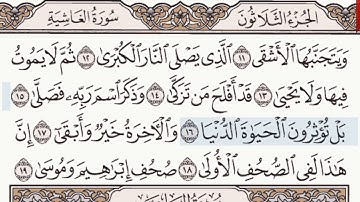 الجُزْءُ الثَّلَاثُونَ سُورَةُ الغَاشِيَةِ
وَيَتَجَنَّبُهَا ٱلْأَشْقَى ١١ ٱلَّذِى يَصْلَى ٱلنَّارَ ٱلْكُبْرَىٰ ١٢ ثُمَّ لَا يَمُوتُ
فِيهَا وَلَا يَحْيَىٰ ١٣ قَدْ أَفْلَحَ مَن تَزَكَّىٰ ١٤ وَذَكَرَ ٱسْمَ رَبِّهِۦ فَصَلَّىٰ ١٥
بَلْ تُؤْثِرُونَ ٱلْحَيَوٰةَ ٱلدُّنْيَا ١٦ وَٱلْءَاخِرَةُ خَيْرٌ وَأَبْقَىٰٓ ١٧ إِنَّ
هَٰذَا لَفِى ٱلصُّحُفِ ٱلْأُولَىٰ ١٨ صُحُفِ إِبْرَٰهِيمَ وَمُوسَىٰ ١٩